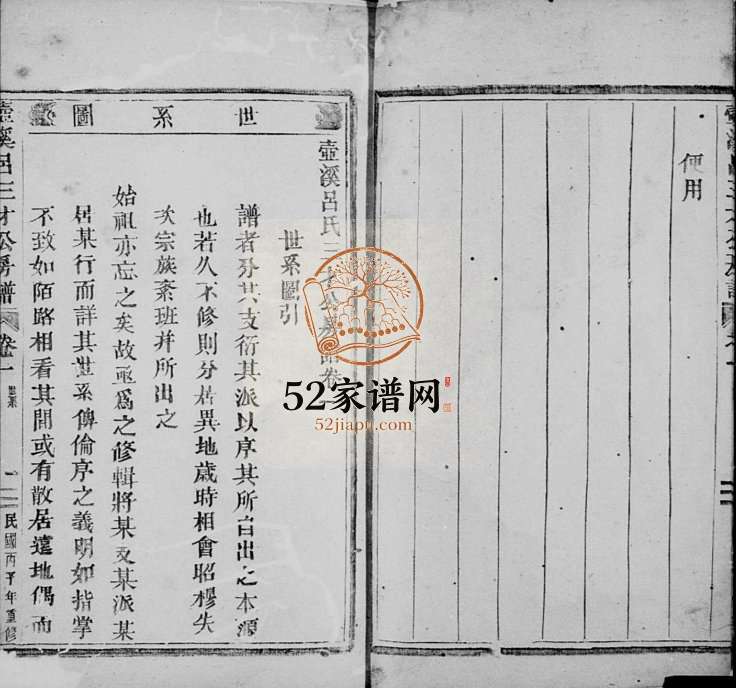 便用
世系圖
壺溪呂氏三才公房譜卷
世系圖引
譜者分其支衍其派以序其所自出之本源
也若久不修則分居異地歲時相會昭穆失
次宗族紊班并所出之
始祖亦忘之矣故亟爲之修輯將某支某派某
居某行而詳其世系俾倫序之義明如指掌
不致如陌路相看其間或有散居遠地偶而
壺溪呂三才公房譜 卷一 世系 一 民國丙子年重修
52家谱网
52jiapu.com